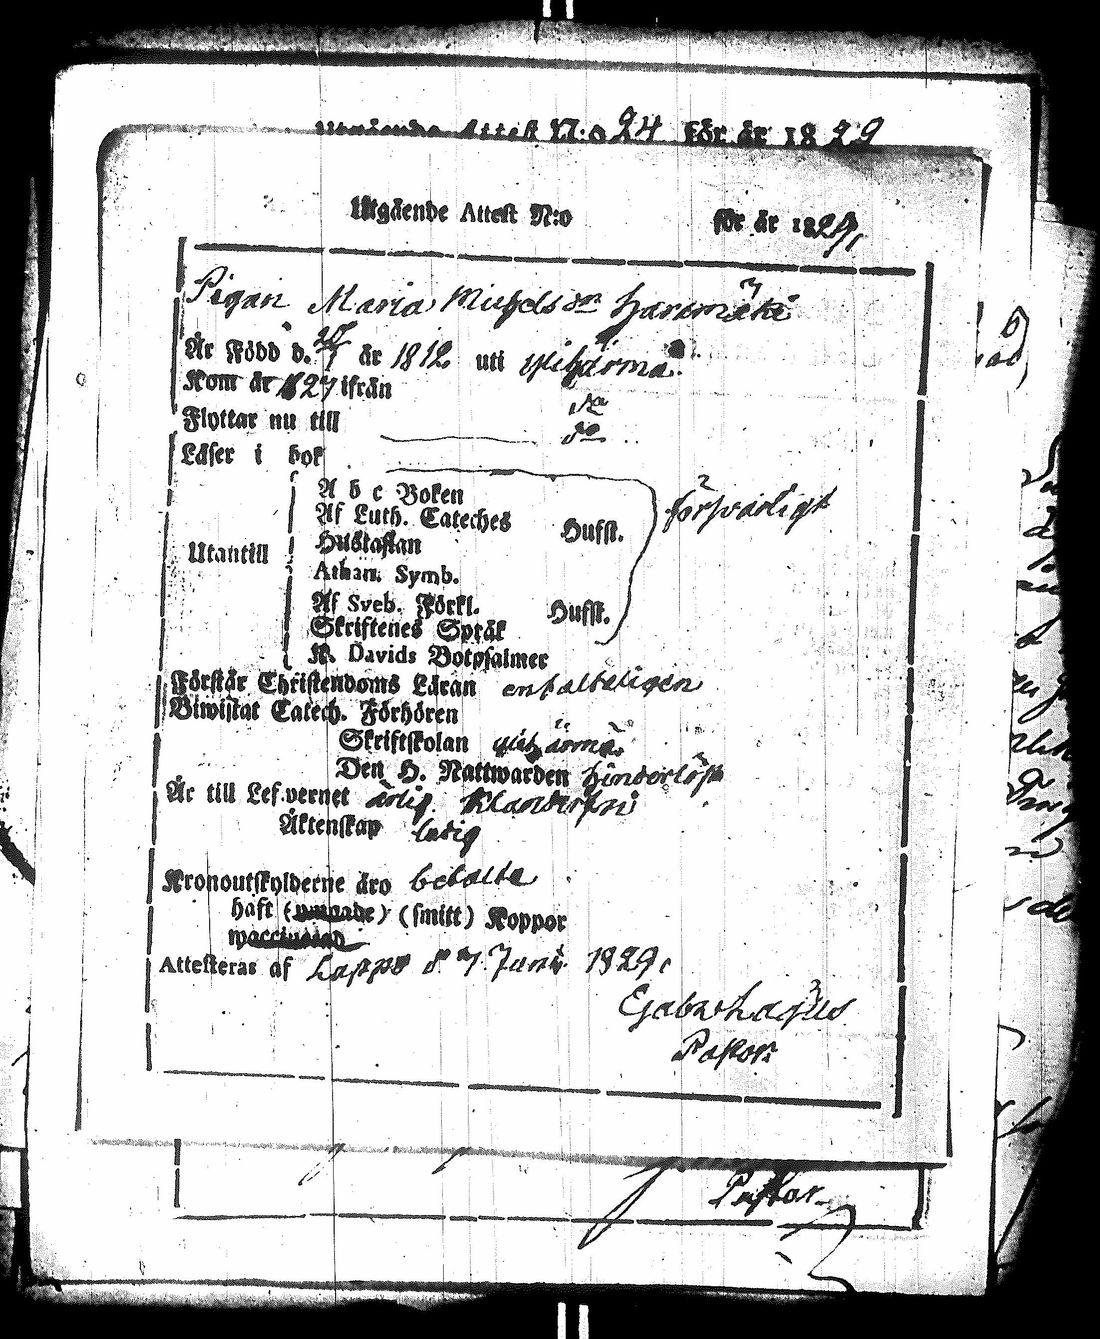 Utgående Attest N:o 24 för år 1829
Utgående Attest N:o för år 1829
Pigan Maria Michelsdr Harjmäki
Är Född d. 27/7 år 1812 uti Ylihärma
Kom år 1827 ifrån do
Flyttar nu till do
Läser i bok
A b c Boken
Af Luth. Cateches Husst. försvarligt
Hustaflan
Utantill
Athan. Symb.
Af Sveb. Förkl. Husst.
Skriftenes Språk
K. Davids Botpsalmer
Förstår Christendoms Läran enfalteligen
Biwistat Catech. Förhören
Skriftskolan Ylihärma
Den H. Nattwarden hinderlöst
Är till Lefvernet ärlig
Äktenskap ledig
Kronoutskylderne äro betalte
haft (ympade) (smitt) Koppor
waccinerad
Attesteras af Lappo d 7 Junii 1829
Pastor
Pastor